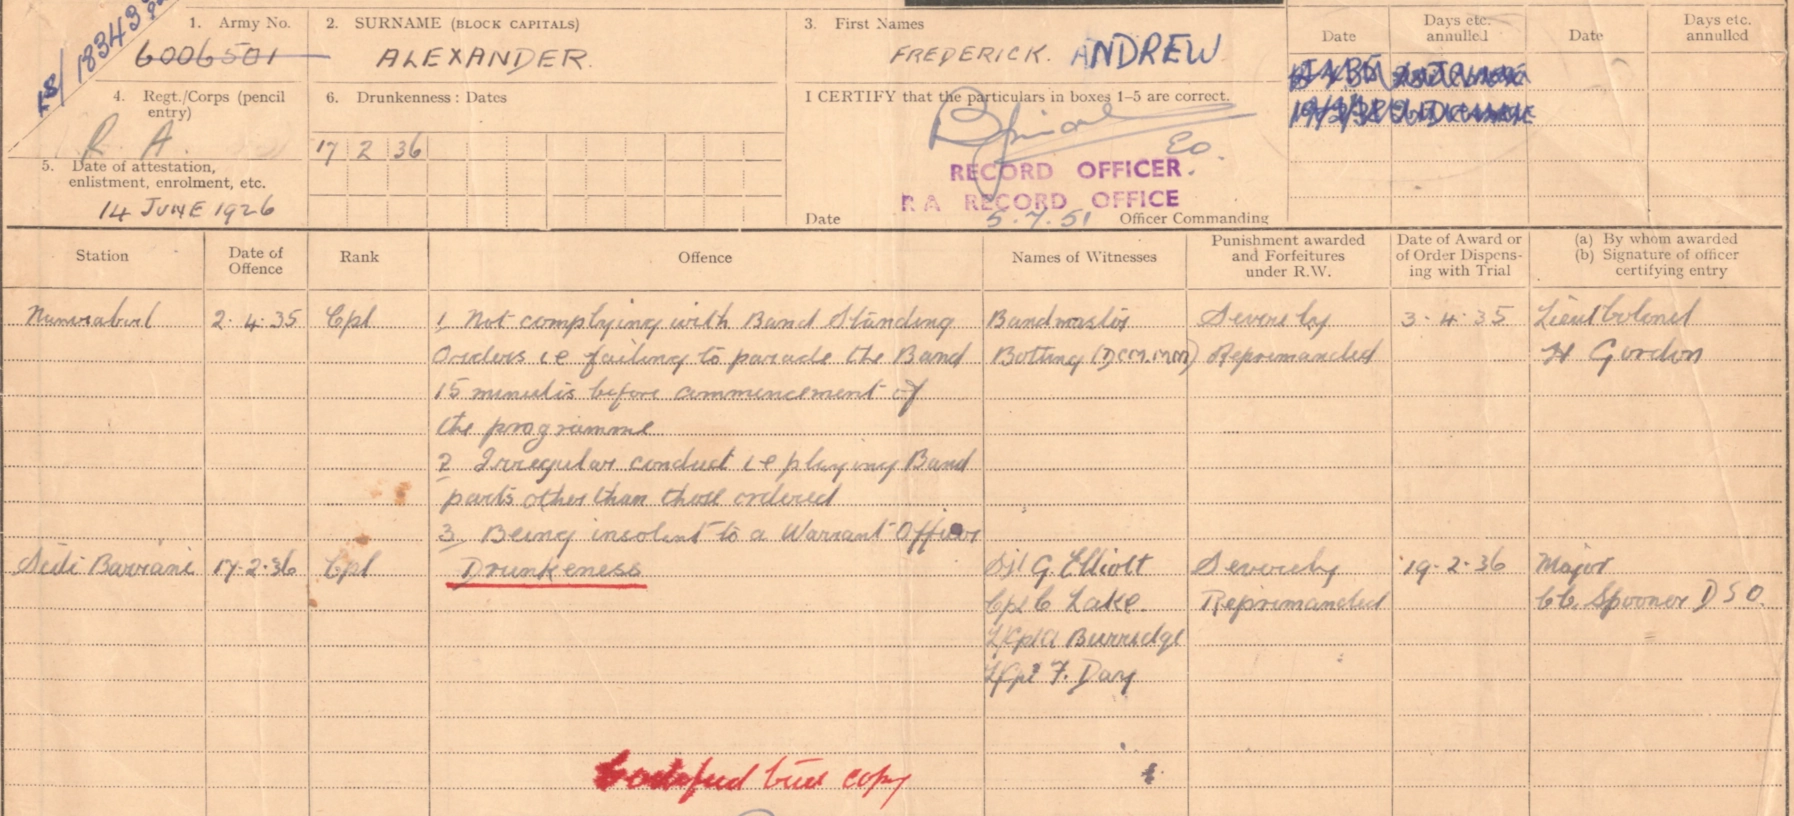 1. Army No.
6006501
2. SURNAME (BLOCK CAPITALS)
ALEXANDER.
3. First Names
FREDERICK. ANDREW
Date
Days etc. annulled
Date
Days etc. annulled
4. Regt./Corps (pencil entry)
R. A.
5. Date of attestation,
enlistment, enrolment, etc.
14 JUNE 1926
6. Drunkenness : Dates
17 2 36
I CERTIFY that the particulars in boxes 1–5 are correct.
RECORD OFFICER.
R A RECORD OFFICE
Date 5.7.51 Officer Commanding
Station
Date of Offence
Rank
Offence
Names of Witnesses
Punishment awarded and Forfeitures under R.W.
Date of Award or of Order Dispensing with Trial
(a) By whom awarded
(b) Signature of officer certifying entry
2.4.35 Cpl 1. Not complying with Band Standing Bandmaster Severely 3.4.35 Lieut Colonel
Orders i.e failing to parade the Band Botting (DCM.MM) Reprimanded H Gordon
15 minutes before commencement of
the programme
2 Irregular conduct i.e playing Band
parts other than those ordered
3. Being insolent to a Warrant Officer
Sidi Barrani 17.2.36 Cpl Drunkeness Sjt G. Elliott Severely 19.2.36 Major
Cpl C Lake. Reprimanded CC. Spooner DSO.
L/Cpl A Burridge
L/Cpl F. Day
Certified true copy